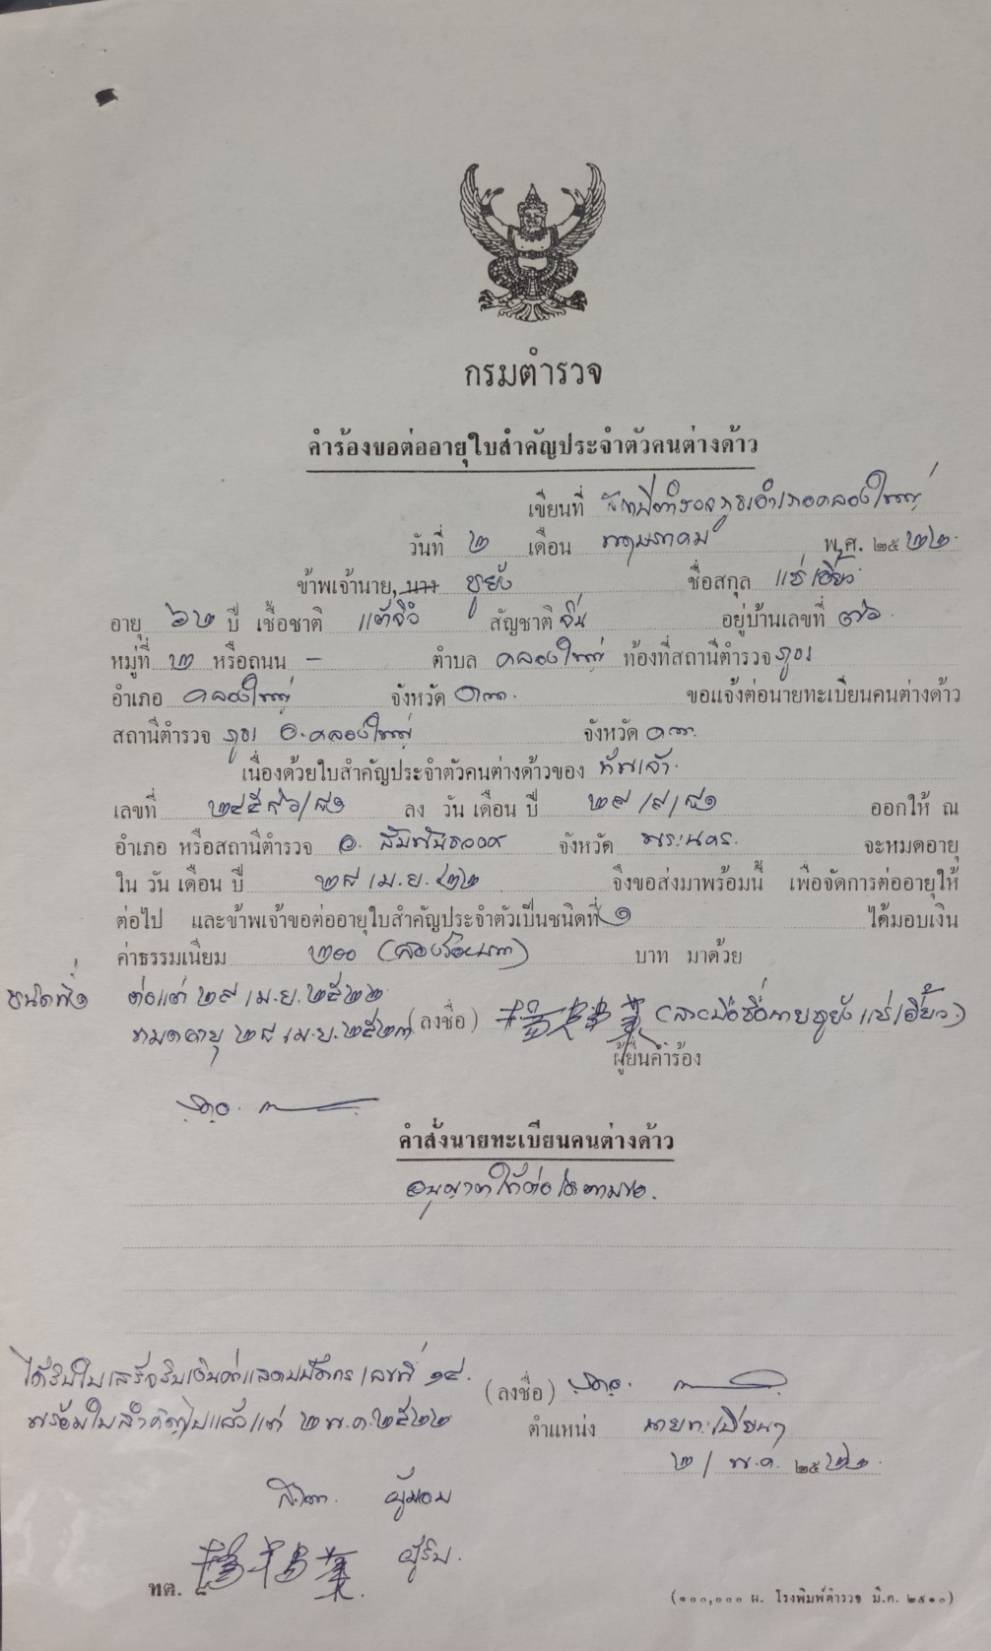 กรมตำรวจ
คำร้องขอต่ออายุใบสำคัญประจำตัวคนต่างด้าว
เขียนที่ สถานีตำรวจภูธรอำเภอคลองใหญ่
วันที่ ๒ เดือน พฤษภาคม พ.ศ. ๒๕๒๒
ข้าพเจ้านาย, นาง ชูยัง ชื่อสกุล แซ่เอี้ยว
อายุ ๖๒ ปี เชื้อชาติ แต้จิ๋ว สัญชาติ จีน อยู่บ้านเลขที่ ๓๖
หมู่ที่ ๒ หรือถนน – ตำบล คลองใหญ่ ท้องที่สถานีตำรวจ ภูธร
อำเภอ คลองใหญ่ จังหวัด ขอแจ้งต่อนายทะเบียนคนต่างด้าว
สถานีตำรวจ ภูธร อ.คลองใหญ่ จังหวัด
เนื่องด้วยใบสำคัญประจำตัวคนต่างด้าวของ ข้าพเจ้า
เลขที่ ลง วัน เดือน ปี ออกให้ ณ
อำเภอ หรือสถานีตำรวจ อ. สัมพันธวงศ์ จังหวัด พระนคร จะหมดอายุ
ใน วัน เดือน ปี ๒๘ เม.ย. ๒๒ จึงขอส่งมาพร้อมนี้ เพื่อจัดการต่ออายุให้
ต่อไป และข้าพเจ้าขอต่ออายุใบสำคัญประจำตัวเป็นชนิดที่ ๑ ได้มอบเงิน
ค่าธรรมเนียม ๒๐๐ (สองร้อยบาท) บาท มาด้วย
ชนิดที่ ๑ ต่อแต่ ๒๙ เม.ย. ๒๕๒๒
หมดอายุ ๒๘ เม.ย. ๒๕๒๓ (ลงชื่อ) (ลายมือชื่อนายชูยัง แซ่เอี้ยว)
ผู้ยื่นคำร้อง
คำสั่งนายทะเบียนคนต่างด้าว
อนุญาตให้ต่อได้ตามขอ.
ได้รับใบเสร็จรับเงินค่า เลขที่ ๑๔.
พร้อมใบสำคัญไปแล้วแต่ ๒ พ.ค. ๒๕๒๒
(ลงชื่อ)
ตำแหน่ง นายทะเบียนฯ
๒ / พ.ค. ๒๕๒๒
ผู้มอบ
ผู้รับ.
ทต. ๘
(๑๐๐,๐๐๐ ผ. โรงพิมพ์ตำรวจ มี.ค. ๒๕๑๐)